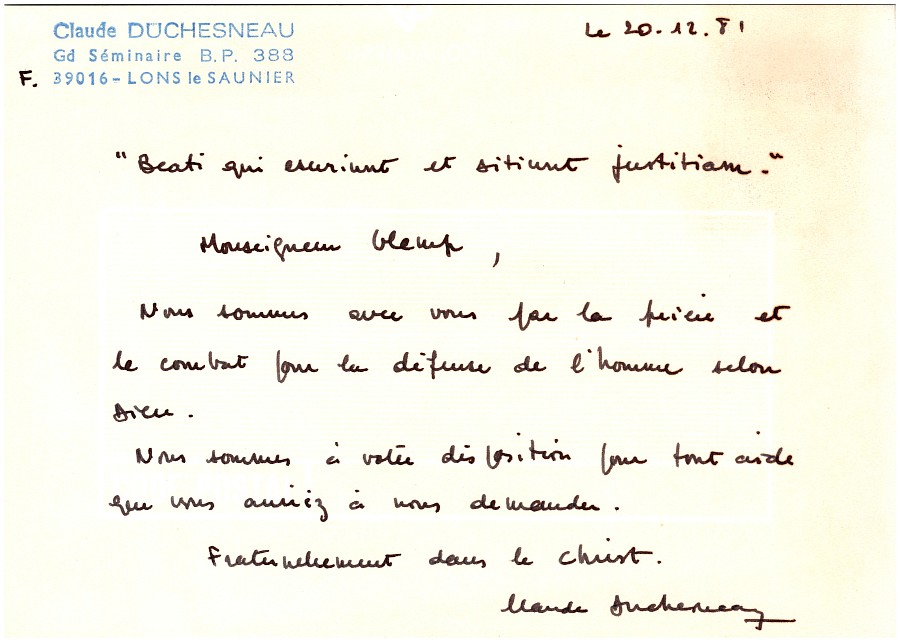 Claude DUCHESNEAU
Gd Séminaire B.P. 388
F. 39016 - LONS le SAUNIER
Le 20.12.81
"Beati qui esuriunt et sitiunt justitiam."
Monseigneur Glemp,
Nous sommes avec vous par la prière et
le combat pour la défense de l'homme selon
Dieu.
Nous sommes à votre disposition pour tout aide
que vous auriez à nous demander.
Fraternellement dans le Christ.
Claude Duchesneau